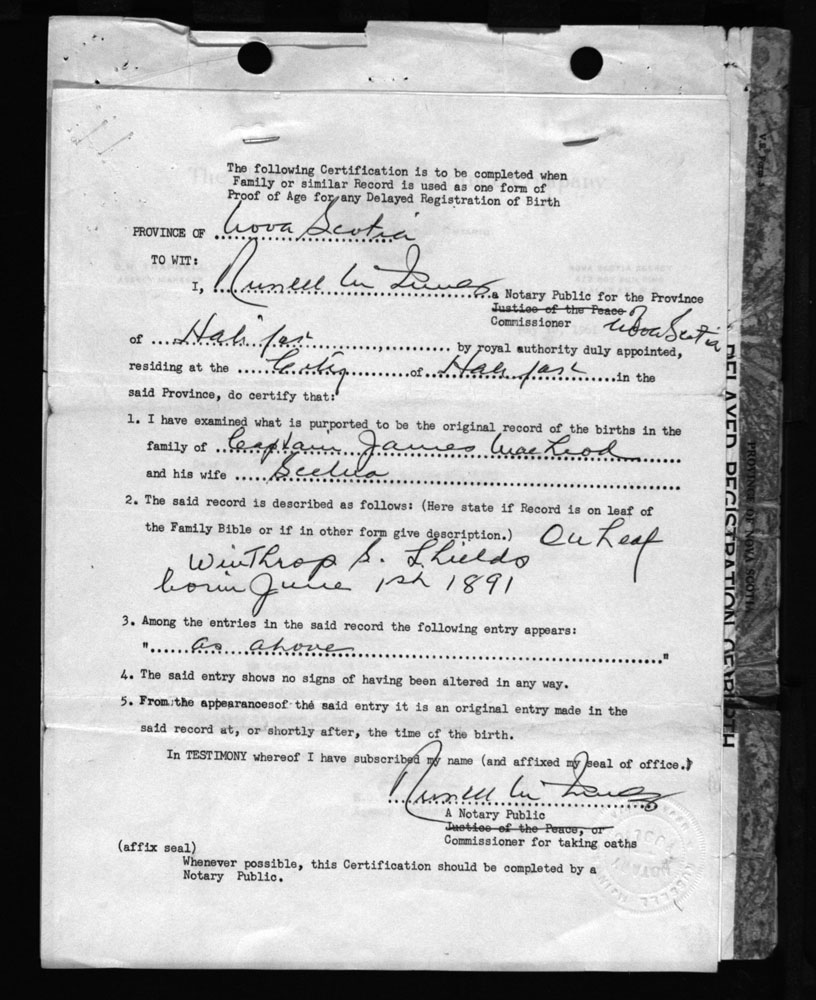 The following Certification is to be completed when
Family or similar Record is used as one form of
Proof of Age for any Delayed Registration of Birth
PROVINCE OF Nova Scotia
TO WIT:
I, Russell a Notary Public for the Province
Justice of the Peace of
Commissioner Nova Scotia
of Halifax by royal authority duly appointed,
residing at the City of Halifax in the
said Province, do certify that:
1. I have examined what is purported to be the original record of the births in the
family of Captain James MacLeod
and his wife
2. The said record is described as follows: (Here state if Record is on leaf of
the Family Bible or if in other form give description.) On Leaf
Winthrop S. Shields
born June 1st 1891
3. Among the entries in the said record the following entry appears:
"as above"
4. The said entry shows no signs of having been altered in any way.
5. From the appearances of the said entry it is an original entry made in the
said record at, or shortly after, the time of the birth.
In TESTIMONY whereof I have subscribed my name (and affixed my seal of office.)
Russell
A Notary Public
Justice of the Peace, or
Commissioner for taking oaths
(affix seal)
Whenever possible, this Certification should be completed by a
Notary Public.
PROVINCE OF NOVA SCOTIA
DELAYED REGISTRATION OF BIRTH